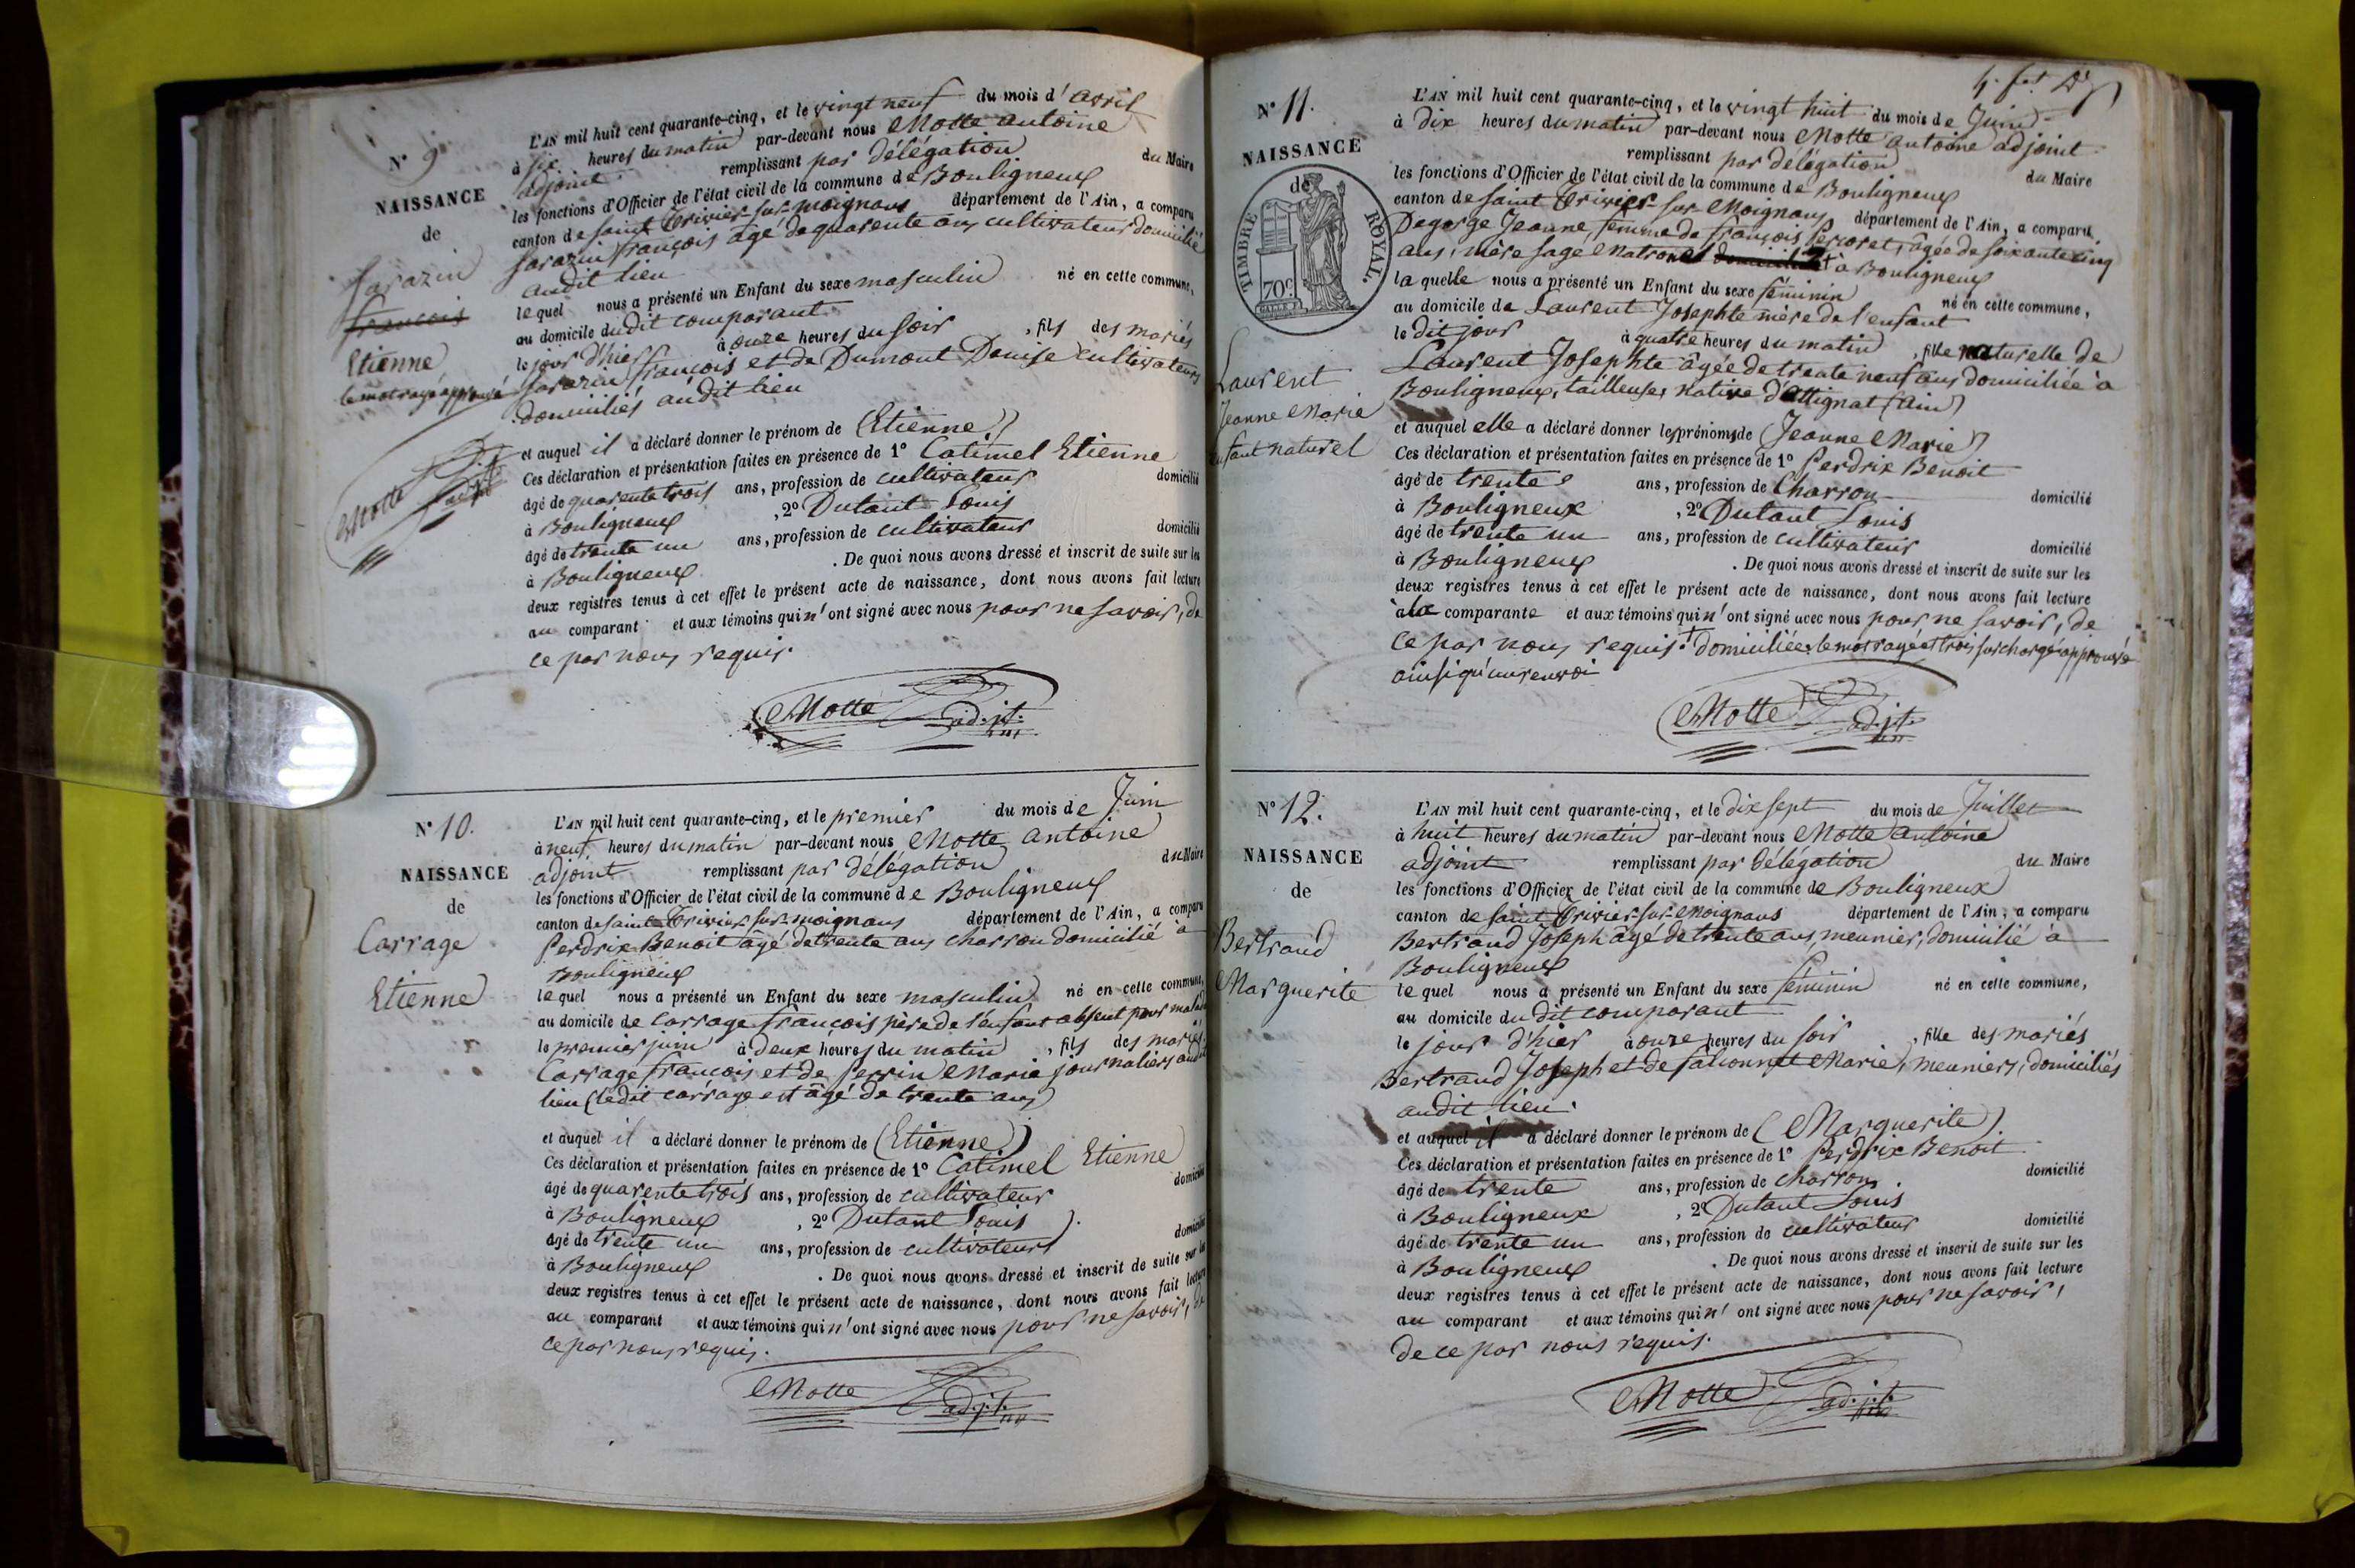 N° 9
NAISSANCE
de
Sarazin
françois
Etienne
le mot rayé approuvé
Motte adjt
L'AN mil huit cent quarante-cinq, et le vingt neuf du mois d'avril
à six heures du matin par-devant nous Motte antoine
adjoint remplissant par délégation du Maire
les fonctions d'Officier de l'état civil de la commune de Bouligneux
canton de saint Trivier-sur-moignans département de l'Ain, a comparu
Sarazin françois âgé de quarente ans cultivateur domicilié
audit lieu
lequel nous a présenté un Enfant du sexe masculin né en cette commune,
au domicile dudit comparant
le jour d'hier à onze heures du soir, fils des mariés
Sarazin françois et de Dumont Denise cultivateurs
domiciliés audit lieu
et auquel il a déclaré donner le prénom de (Etienne)
Ces déclaration et présentation faites en présence de 1° Catimel Etienne
âgé de quarente trois ans, profession de cultivateur domicilié
à Bouligneux, 2° Dutant Louis
âgé de trente un ans, profession de cultivateur domicilié
à Bouligneux. De quoi nous avons dressé et inscrit de suite sur les
deux registres tenus à cet effet le présent acte de naissance, dont nous avons fait lecture
au comparant et aux témoins qui n'ont signé avec nous pour ne savoir, de
ce par nous requis.
Motte adjt.
N° 10.
NAISSANCE
de
Carrage
Etienne
L'AN mil huit cent quarante-cinq, et le premier du mois de Juin
à neuf heures du matin par-devant nous Motte antoine
adjoint remplissant par délégation du Maire
les fonctions d'Officier de l'état civil de la commune de Bouligneux
canton de saint Trivier sur moignans département de l'Ain, a comparu
Perdrix Benoit âgé de trente ans charron domicilié à
Bouligneux
lequel nous a présenté un Enfant du sexe masculin né en cette commune,
au domicile de Carrage françois père de l'enfant absent pour
le premier juin à deux heures du matin, fils des mariés
Carrage françois et de Perrin Marie journaliers audit
lieu (ledit carrage est âgé de trente ans)
et auquel il a déclaré donner le prénom de (Etienne)
Ces déclaration et présentation faites en présence de 1° Catimel Etienne
âgé de quarente trois ans, profession de cultivateur domicilié
à Bouligneux, 2° Dutant Louis
âgé de trente un ans, profession de cultivateur domicilié
à Bouligneux. De quoi nous avons dressé et inscrit de suite sur les
deux registres tenus à cet effet le présent acte de naissance, dont nous avons fait lecture
au comparant et aux témoins qui n'ont signé avec nous pour ne savoir, de
ce par nous requis.
Motte adjt.
N° 11.
NAISSANCE
de
TIMBRE ROYAL.
70c
Laurent
Jeanne Marie
enfant naturel
L'AN mil huit cent quarante-cinq, et le vingt huit du mois de Juin
à dix heures du matin par-devant nous Motte antoine adjoint
remplissant par délégation du Maire
les fonctions d'Officier de l'état civil de la commune de Bouligneux
canton de saint Trivier-sur-Moignans département de l'Ain, a comparu
Degorge Jeanne, femme de françois Percoret, âgée de soixante cinq
ans, mère sage Matrone à Bouligneux
laquelle nous a présenté un Enfant du sexe féminin né en cette commune,
au domicile de Laurent Josephte mère de l'enfant
le dit jour à quatre heures du matin, fille naturelle de
Laurent Josephte âgée de trente neuf ans domiciliée à
Bouligneux, tailleuse, native d'attignat (ain)
et auquel elle a déclaré donner les prénoms de (Jeanne Marie)
Ces déclaration et présentation faites en présence de 1° Perdrix Benoit
âgé de trente ans, profession de Charron domicilié
à Bouligneux, 2° Dutant Louis
âgé de trente un ans, profession de cultivateur domicilié
à Bouligneux. De quoi nous avons dressé et inscrit de suite sur les
deux registres tenus à cet effet le présent acte de naissance, dont nous avons fait lecture
à la comparante et aux témoins qui n'ont signé avec nous pour ne savoir, de
ce par nous requis. + domiciliée, le mot rayé et trois surchargé approuvé
ainsi qu'un renvoi
Motte adjt.
N° 12.
NAISSANCE
de
Bertrand
Marguerite
L'AN mil huit cent quarante-cinq, et le dix sept du mois de Juillet
à huit heures du matin par-devant nous Motte antoine
adjoint remplissant par délégation du Maire
les fonctions d'Officier de l'état civil de la commune de Bouligneux
canton de saint Trivier-sur-Moignans département de l'Ain, a comparu
Bertrand Joseph âgé de trente ans, meunier, domicilié à
Bouligneux
lequel nous a présenté un Enfant du sexe féminin né en cette commune,
au domicile dudit comparant
le jour d'hier à onze heures du soir, fille des mariés
Bertrand Joseph et de Marie, meuniers, domiciliés
audit lieu.
et auquel il a déclaré donner le prénom de (Marguerite).
Ces déclaration et présentation faites en présence de 1° Perdrix Benoit
âgé de trente ans, profession de charron domicilié
à Bouligneux, 2° Dutant Louis
âgé de trente un ans, profession de cultivateur domicilié
à Bouligneux. De quoi nous avons dressé et inscrit de suite sur les
deux registres tenus à cet effet le présent acte de naissance, dont nous avons fait lecture
au comparant et aux témoins qui n'ont signé avec nous pour ne savoir,
de ce par nous requis.
Motte adjt.